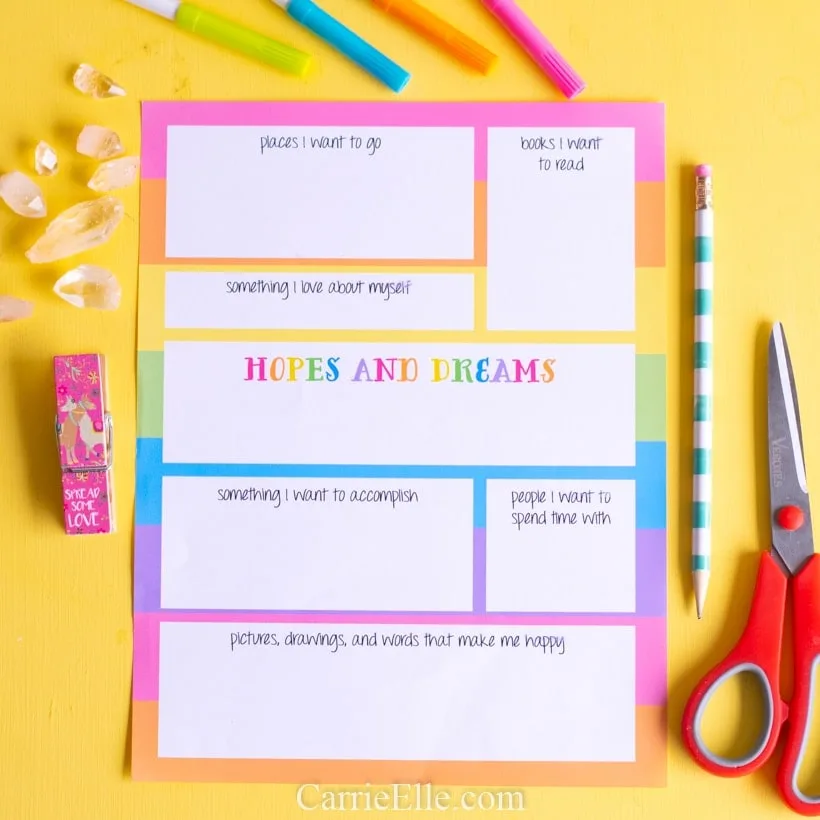 places I want to go
books I want
to read
something I love about myself
HOPES AND DREAMS
something I want to accomplish
people I want to
spend time with
pictures, drawings, and words that make me happy
SPREAD
SOME
LOVE
VERITAS
CarrieElle.com